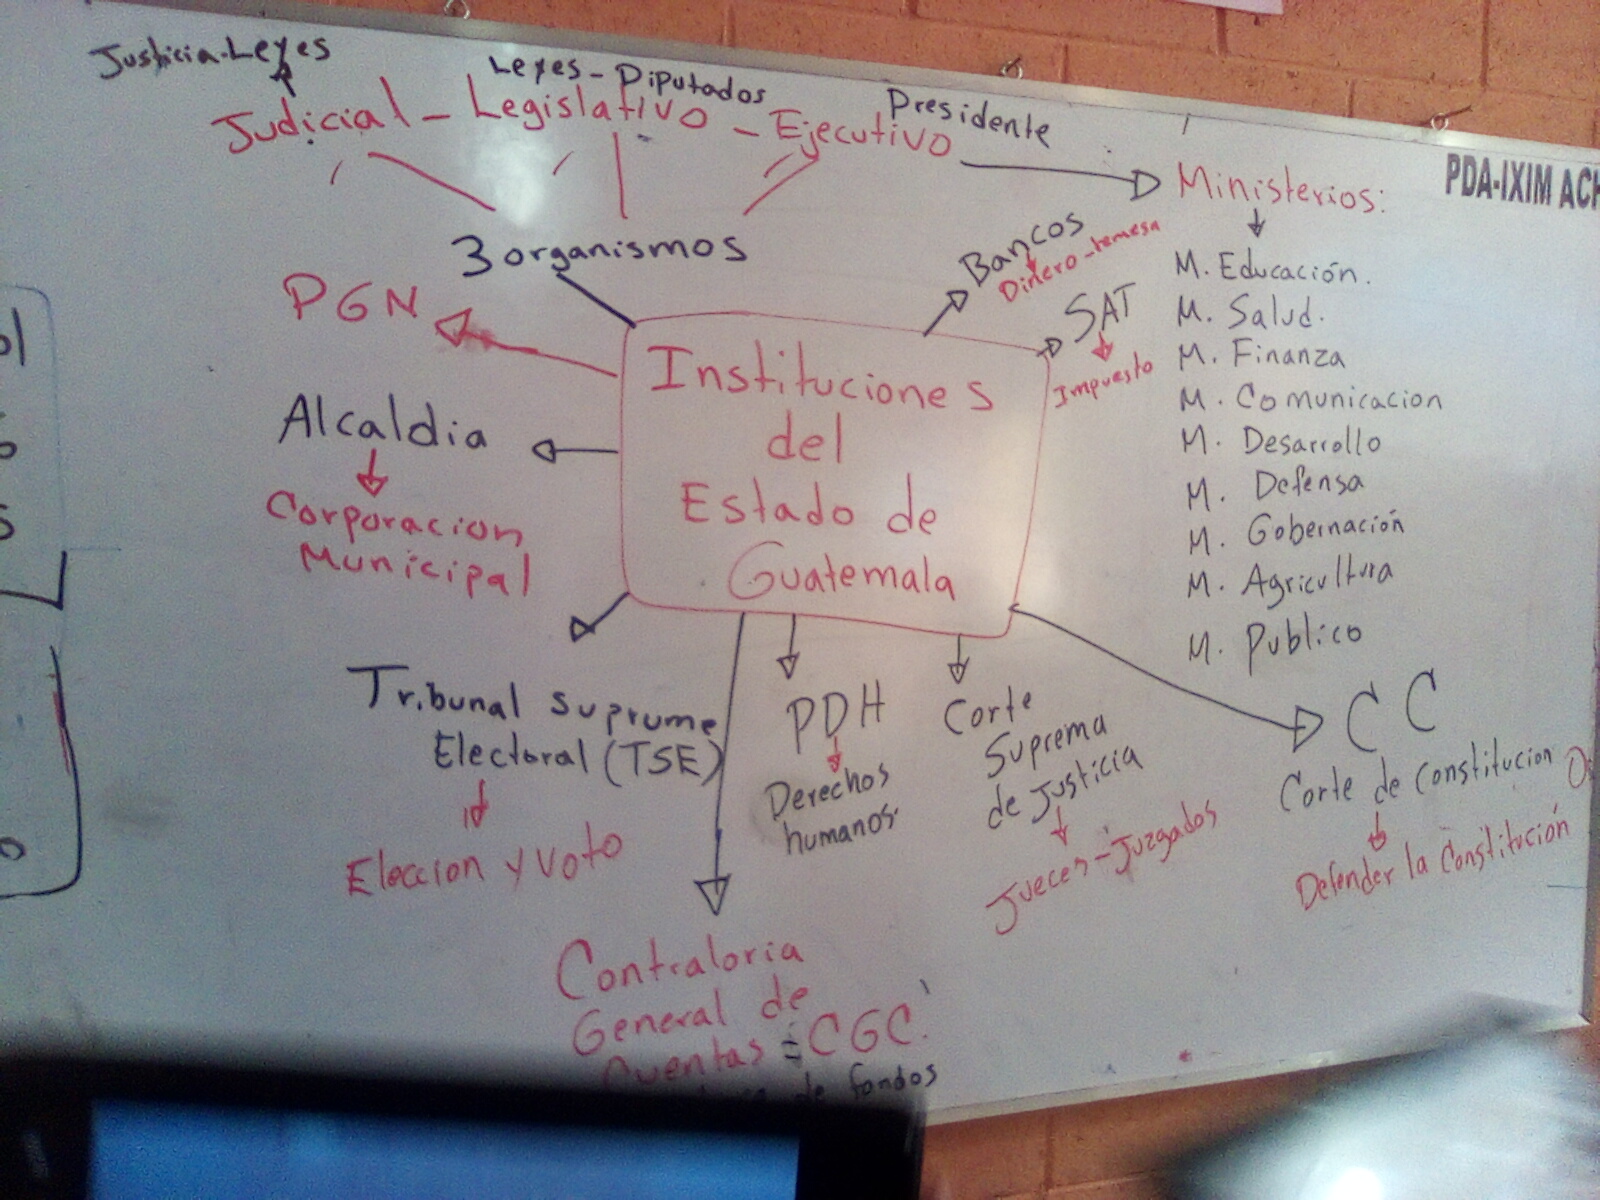 Justicia-Leyes
Leyes - Diputados
Presidente
Judicial - Legislativo - Ejecutivo
3 organismos
PGN
Alcaldia
Corporacion
Municipal
Instituciones
del
Estado de
Guatemala
Bancos
Dinero - remesa
SAT
Impuesto
Ministerios:
M. Educación.
M. Salud.
M. Finanza
M. Comunicacion
M. Desarrollo
M. Defensa
M. Gobernación
M. Agricultura
M. Publico
PDA-IXIM
Tribunal Suprume
Electoral (TSE)
Eleccion y voto
PDH
Derechos
humanos.
Corte
Suprema
de Justicia
Jueces - Juzgados
CC
Corte de Constitucion
Defender la Constitución
Contraloria
General de
Cuentas = CGC.
de fondos